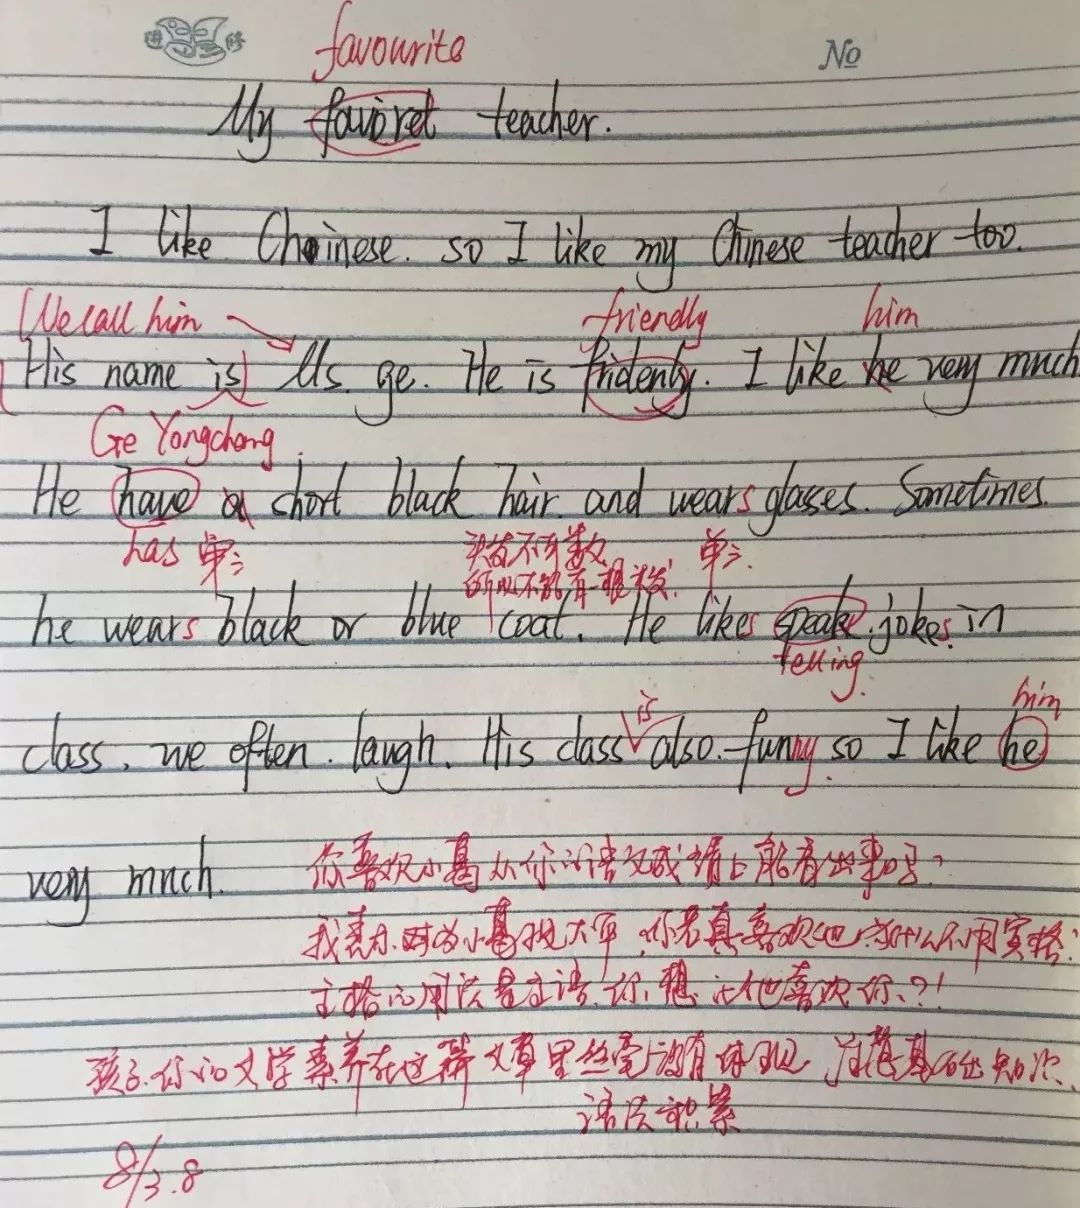 No
favourite
My favoret teacher.
I like Chinese. so I like my Chinese teacher too.
We call him friendly him
His name is Ms. ge. He is fridenly. I like he very much
Ge Yongchang.
He have a short black hair. and wears glasses. Sometimes
has 单三 头发不可数, 单三.
所以不能有一根头发!
he wears black or blue coat. He likes speak jokes. in
telling.
is him
class. we often. laugh. His class also. funny. so I like he
very much. 你喜欢小葛从你的语文成绩上能看出来吗?
我表示对为小葛 你若真喜欢他为什么不用宾格!
主格的用法是主语,你想让他喜欢你?!
孩子你的文学素养在这篇文章里丝毫没有体现 注意基础知识、
语法积累
8/3.8